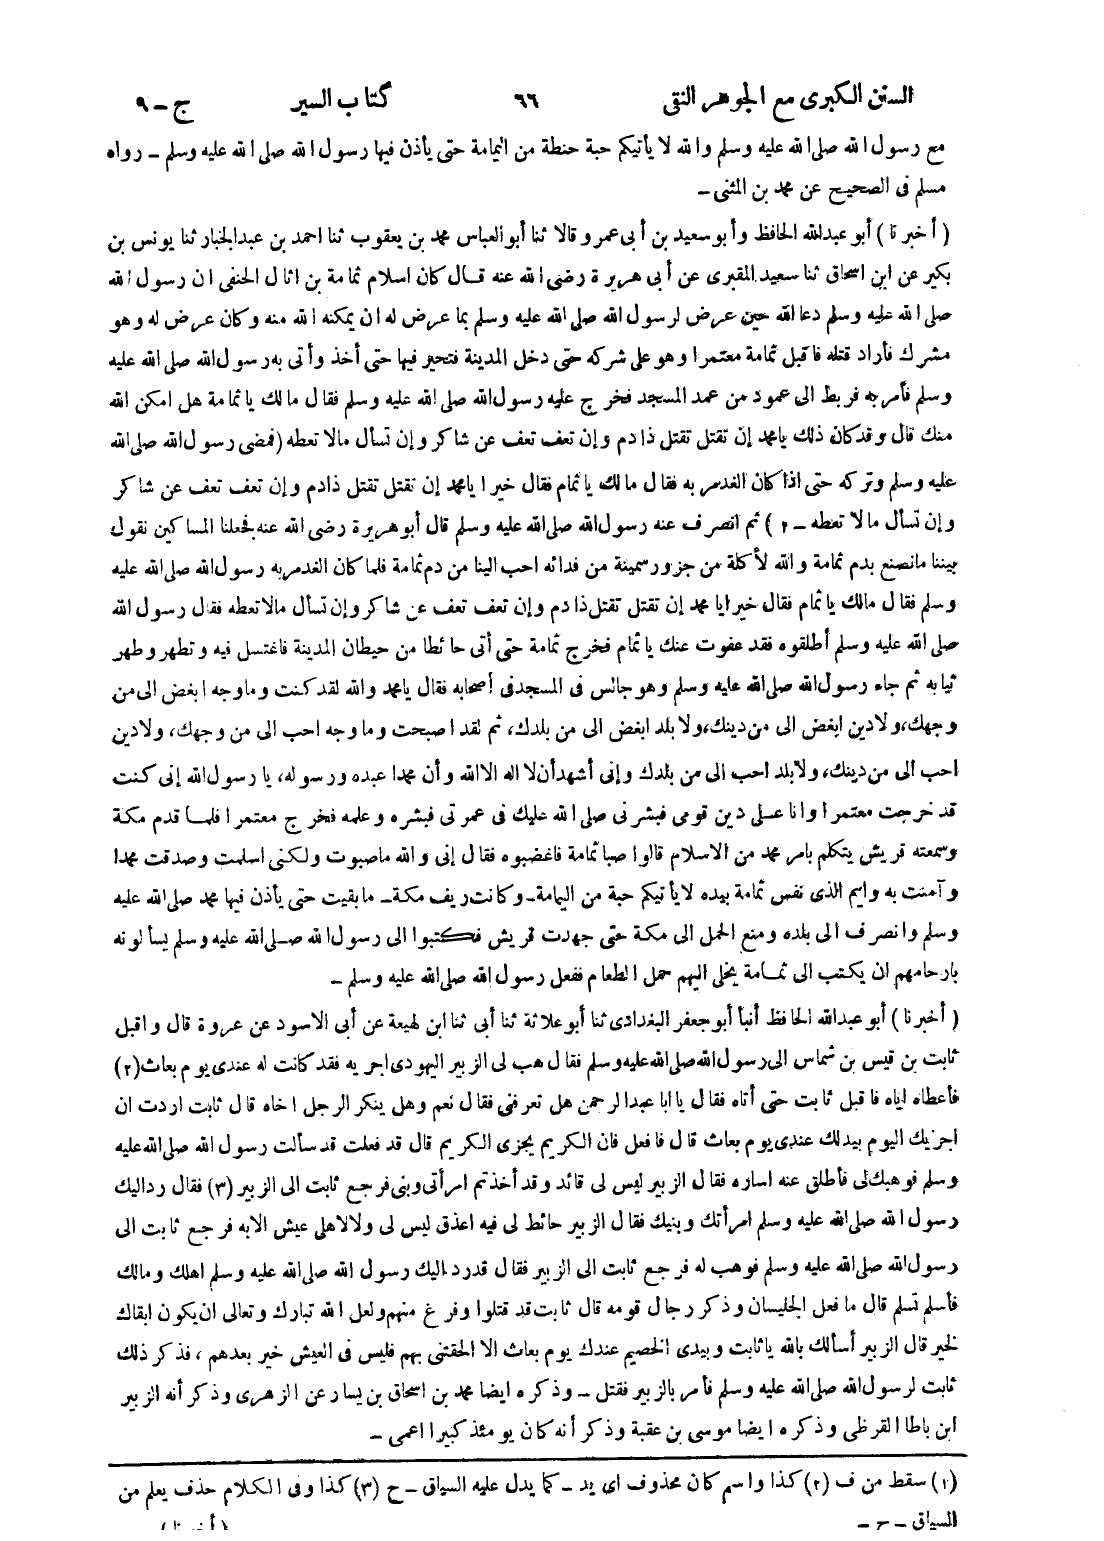 السنن الكبرى مع الجوهر النقى ٦٦ كتاب السير ج - ٩
مع رسول الله صلى الله عليه وسلم والله لا يأتيكم حبة حنطة من اليمامة حتى يأذن فيها رسول الله صلى الله عليه وسلم - رواه
مسلم فى الصحيح عن محمد بن المثنى -
( أخبرنا ) أبو عبدالله الحافظ وأبو سعيد بن أبى عمرو قالا ثنا أبو العباس محمد بن يعقوب ثنا احمد بن عبدالجبار ثنا يونس بن
بكير عن ابن اسحاق ثنا سعيد المقبرى عن أبى هريرة رضى الله عنه قال كان اسلام ثمامة بن اثال الحنفى ان رسول الله
صلى الله عليه وسلم دعا الله حين عرض لرسول الله صلى الله عليه وسلم بما عرض له ان يمكنه الله منه وكان عرض له وهو
مشرك فأراد قتله فاقبل ثمامة معتمرا وهو على شركه حتى دخل المدينة فتحير فيها حتى أخذ وأتى به رسول الله صلى الله عليه
وسلم فأمر به فربط الى عمود من عمد المسجد فخرج عليه رسول الله صلى الله عليه وسلم فقال مالك ياثمامة هل امكن الله
منك قال وقد كان ذلك يامحمد إن تقتل تقتل ذا دم وإن تعف تعف عن شاكر وإن تسأل مالا تعطه (فمضى رسول الله صلى الله
عليه وسلم وتركه حتى اذا كان الغد مر به فقال مالك ياثمام فقال خيرا يامحمد إن تقتل تقتل ذادم وإن تعف تعف عن شاكر
وإن تسأل مالا تعطه - ١ ) ثم انصرف عنه رسول الله صلى الله عليه وسلم قال أبو هريرة رضى الله عنه فجعلنا المساكين نقول
بيننا مانصنع بدم ثمامة والله لأكلة من جزور سمينة من فدائه احب الينا من دم ثمامة فلما كان الغد مر به رسول الله صلى الله عليه
وسلم فقال مالك ياثمام فقال خيرا يا محمد إن تقتل تقتل ذا دم وإن تعف تعف عن شاكر وإن تسأل مالا تعطه فقال رسول الله
صلى الله عليه وسلم أطلقوه فقد عفوت عنك ياثمام فخرج ثمامة حتى أتى حائطا من حيطان المدينة فاغتسل فيه وتطهر وطهر
ثيابه ثم جاء رسول الله صلى الله عليه وسلم وهو جالس فى المسجد فى أصحابه فقال يامحمد والله لقد كنت وما وجه ابغض الى من
وجهك، ولا دين ابغض الى من دينك، ولا بلد ابغض الى من بلدك، ثم لقد اصبحت وما وجه احب الى من وجهك، ولا دين
احب الى من دينك، ولا بلد احب الى من بلدك وإنى أشهد أن لا اله الا الله وأن محمدا عبده ورسوله، يا رسول الله إنى كنت
قد خرجت معتمرا وانا على دين قومى فبشرنى صلى الله عليك فى عمرتى فبشره وعلمه فخرج معتمرا فلما قدم مكة
وسمعته قريش يتكلم بامر محمد من الاسلام قالوا صبا ثمامة فاغضبوه فقال إنى والله ماصبوت ولكنى اسلمت وصدقت محمدا
وآمنت به وايم الذى نفس ثمامة بيده لا يأتيكم حبة من اليمامة - وكانت ريف مكة - مابقيت حتى يأذن فيها محمد صلى الله عليه
وسلم وانصرف الى بلده ومنع الحمل الى مكة حتى جهدت قريش فكتبوا الى رسول الله صلى الله عليه وسلم يسألونه
بارحامهم ان يكتب الى ثمامة يخلى اليهم حمل الطعام ففعل رسول الله صلى الله عليه وسلم -
( أخبرنا ) أبو عبدالله الحافظ أنبأ أبو جعفر البغدادى ثنا أبو علاثة ثنا أبى ثنا ابن لهيعة عن أبى الاسود عن عروة قال واقبل
ثابت بن قيس بن شماس الى رسول الله صلى الله عليه وسلم فقال هب لى الزبير اليهودى اجريه فقد كانت له عندى يوم بعاث (٢)
فأعطاه اياه فاقبل ثابت حتى أتاه فقال يا ابا عبدالرحمن هل تعرفنى فقال نعم وهل ينكر الرجل اخاه قال ثابت اردت ان
اجزيك اليوم بيدلك عندى يوم بعاث قال فافعل فان الكريم يجزى الكريم قال قد فعلت قد سألت رسول الله صلى الله عليه
وسلم فوهبك لى فأطلق عنه اساره فقال الزبير ليس لى قائد وقد أخذتم امرأتى وبنى فرجع ثابت الى الزبير (٣) فقال رد اليك
رسول الله صلى الله عليه وسلم امرأتك وبنيك فقال الزبير حائط لى فيه اعذق ليس لى ولا لاهلى عيش الا به فرجع ثابت الى
رسول الله صلى الله عليه وسلم فوهب له فرجع ثابت الى الزبير فقال قد رد اليك رسول الله صلى الله عليه وسلم اهلك ومالك
فأسلم تسلم قال ما فعل الجليسان وذكر رجال قومه قال ثابت قد قتلوا وفرغ منهم ولعل الله تبارك وتعالى ان يكون ابقاك
لخير قال الزبير أسألك بالله ياثابت وبيدى الخصيم عندك يوم بعاث الا الحقتنى بهم فليس فى العيش خير بعدهم، فذكر ذلك
ثابت لرسول الله صلى الله عليه وسلم فأمر بالزبير فقتل - وذكره ايضا محمد بن اسحاق بن يسار عن الزهرى وذكر أنه الزبير
ابن باطا القرظى وذكره ايضا موسى بن عقبة وذكر أنه كان يومئذ كبيرا اعمى -
(١) سقط من ف (٢) كذا واسم كان محذوف اى يد - كما يدل عليه السياق - ح (٣) كذا وفى الكلام حذف يعلم من
السياق - ح - ( أخبرنا )